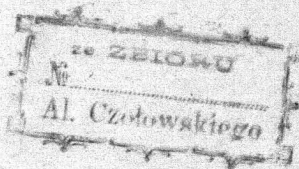 ze ZBIORU
№
Al. Czołowskiego